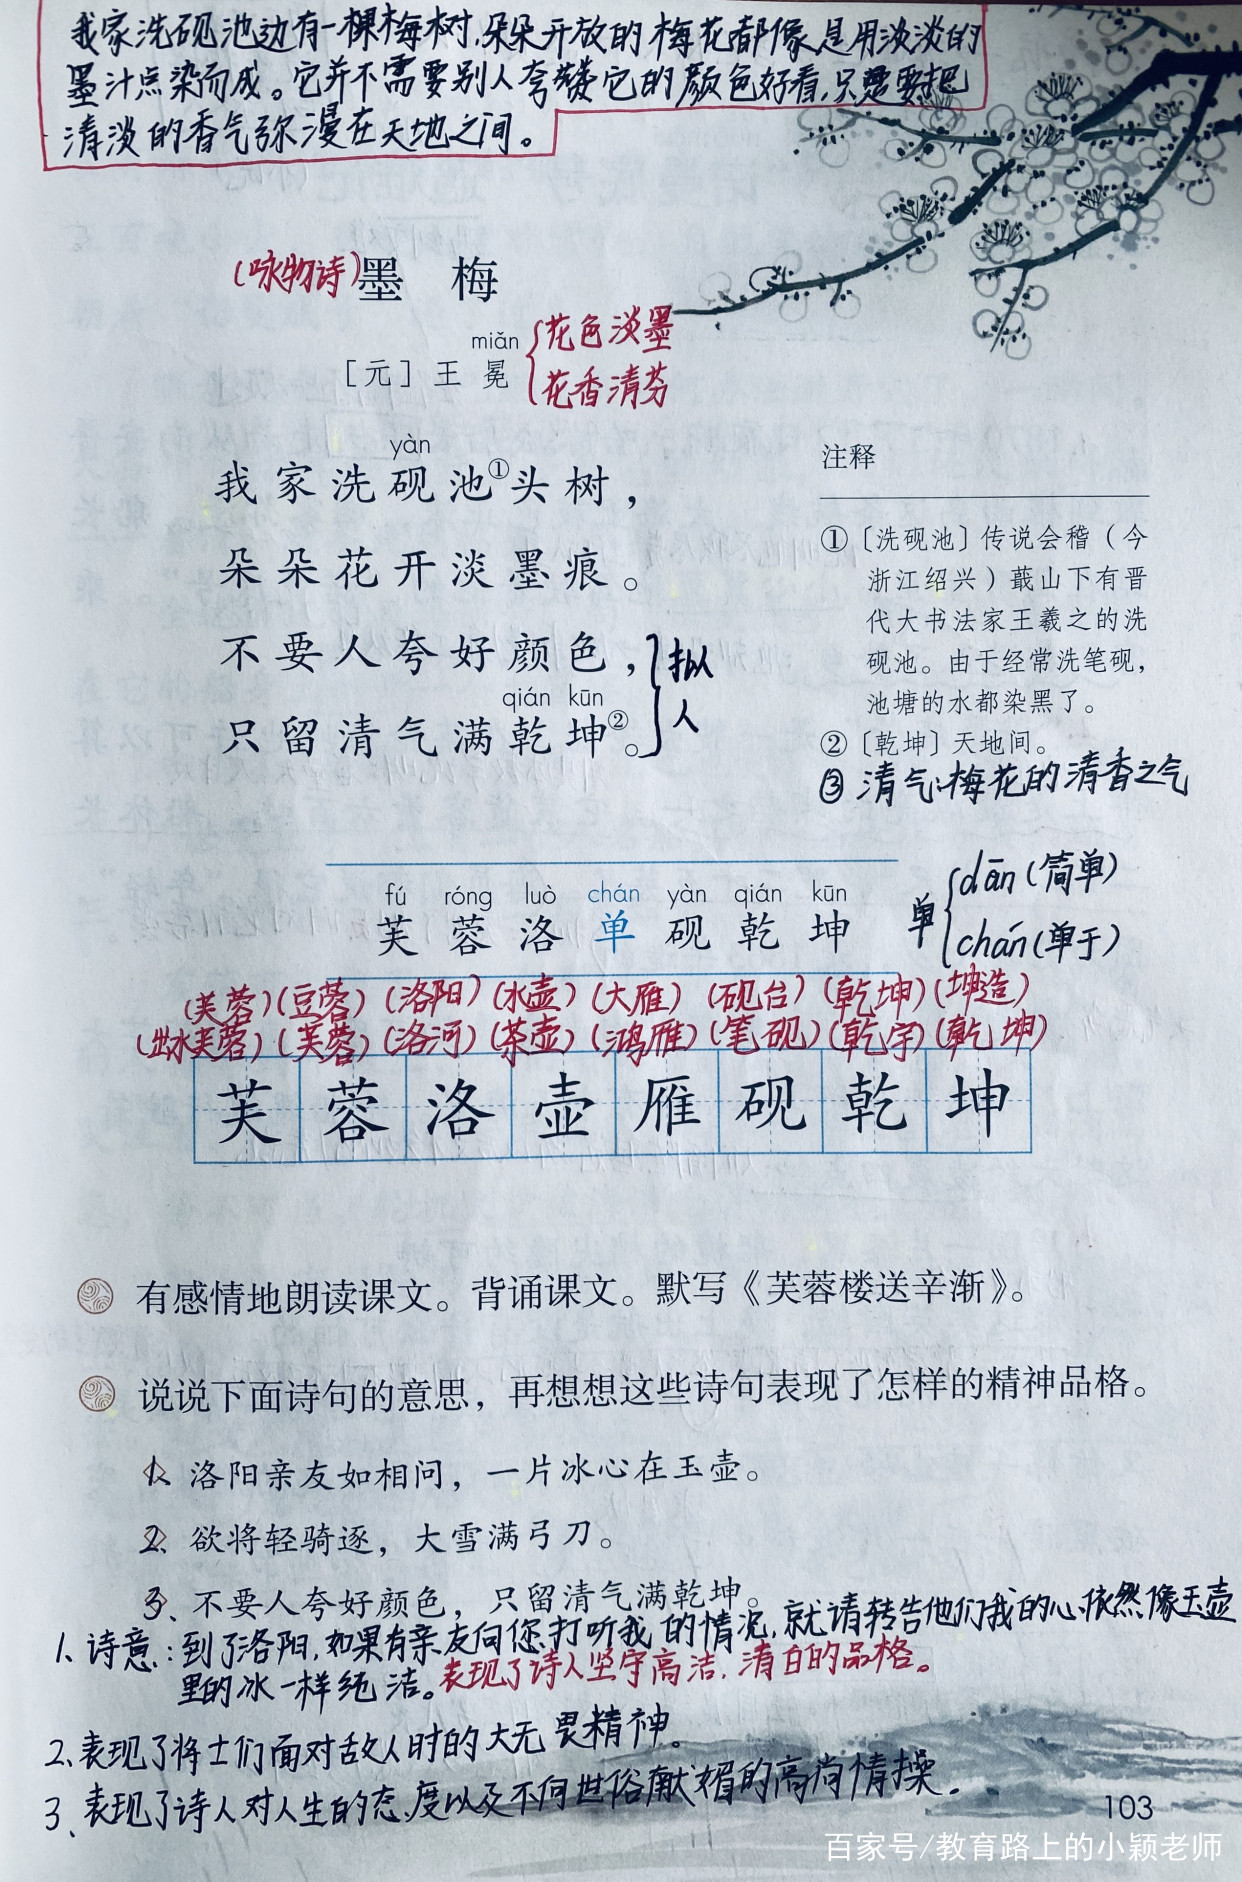 我家洗砚池边有一棵梅树,朵朵开放的梅花都像是用淡淡的
墨汁点染而成。它并不需要别人夸赞它的颜色好看,只是要把
清淡的香气弥漫在天地之间。
(咏物诗)墨 梅
miǎn
[元]王 冕
花色淡墨
花香清芬
yàn
我家洗砚池①头树，
朵朵花开淡墨痕。
不要人夸好颜色，
qián kūn
只留清气满乾坤②。
拟
人
注释
①〔洗砚池〕传说会稽（今
浙江绍兴）蕺山下有晋
代大书法家王羲之的洗
砚池。由于经常洗笔砚，
池塘的水都染黑了。
②〔乾坤〕天地间。
③ 清气:梅花的清香之气
fú róng luò chán yàn qián kūn
芙 蓉 洛 单 砚 乾 坤
单
dān(简单)
chán(单于)
(芙蓉)(豆蓉)(洛阳)(水壶)(大雁)(砚台)(乾坤)(坤造)
(出水芙蓉)(芙蓉)(洛河)(茶壶)(鸿雁)(笔砚)(乾宇)(乾坤)
芙 蓉 洛 壶 雁 砚 乾 坤
有感情地朗读课文。背诵课文。默写《芙蓉楼送辛渐》。
说说下面诗句的意思，再想想这些诗句表现了怎样的精神品格。
1、洛阳亲友如相问，一片冰心在玉壶。
2、欲将轻骑逐，大雪满弓刀。
3、不要人夸好颜色，只留清气满乾坤。
1、诗意:到了洛阳,如果有亲友向您打听我的情况,就请转告他们我的心依然像玉壶
里的冰一样纯洁。表现了诗人坚守高洁,清白的品格。
2、表现了将士们面对敌人时的大无畏精神。
3、表现了诗人对人生的态度以及不向世俗献媚的高尚情操。
103
百家号/教育路上的小颖老师